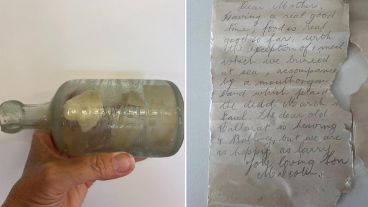 Dear Mother,
Having a real good
time, food is real
good so far, with
the exception of 1 meal
which we buried
at sea, accompanied
by a mouthorgan
band which played
the dead March in
Saul. The dear old
Ballarat is heaving
& rolling, but we are
as happy as larry.
Your loving Son
Malcolm.